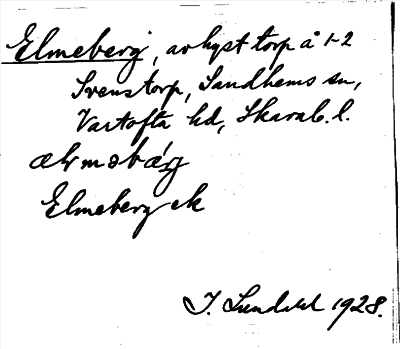 Elmeberg, avhyst torp å 1-2
Svenstorp, Sandhems sn,
Vartofta hd, Skarab. l.
Elmeberg ek
J. Lundahl 1928.